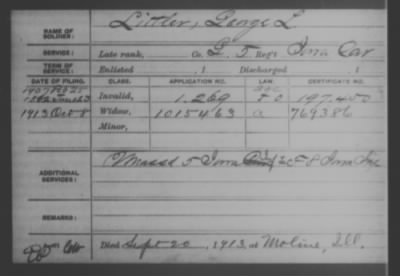 NAME OF SOLDIER: Littler, George L
SERVICE: Late rank, Co. G, 5 Reg't Iowa Cav
TERM OF SERVICE: Enlisted , 1 Discharged , 1
DATE OF FILING. CLASS. APPLICATION NO. LAW. CERTIFICATE NO.
Invalid, 1.269 197.450
1913 Oct 8 Widow, 1015463 a 769386
Minor,
ADDITIONAL SERVICES: 5 Iowa 8 Iowa
REMARKS:
Died Sept 20, 1913, at Moline, Ill.